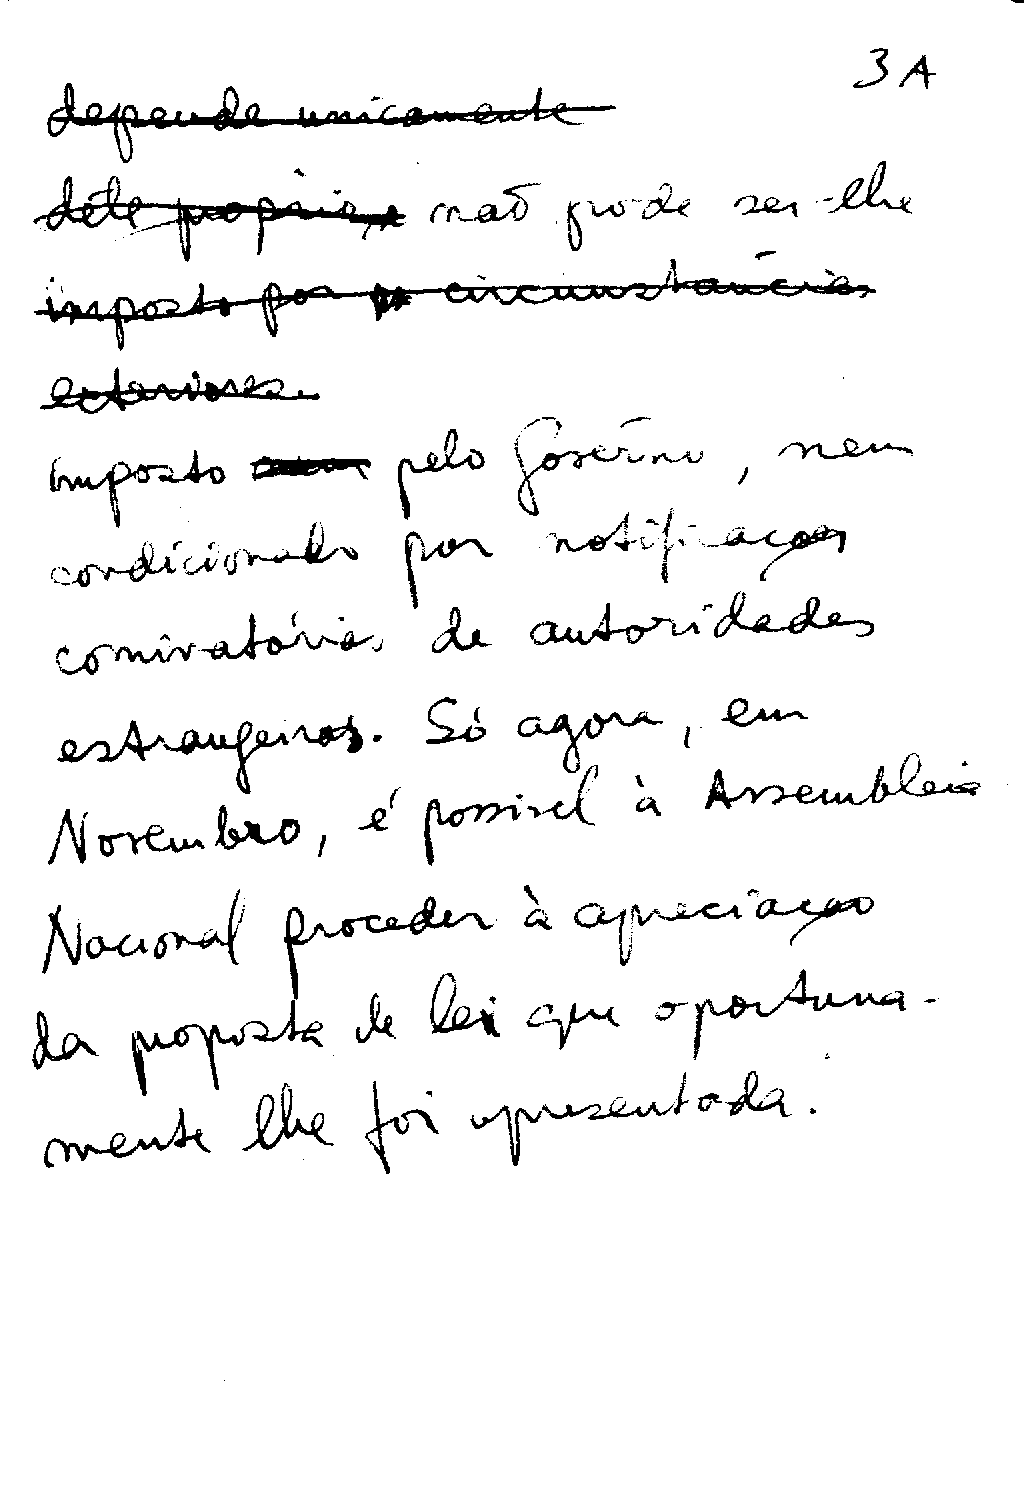 3A
depende unicamente
dele próprio, não pode ser-lhe
imposto por circunstâncias
exteriores.
imposto pelo Govêrno, nem
condicionado por notificações
cominatórias de autoridades
estrangeiras. Só agora, em
Novembro, é possivel à Assembleia
Nacional proceder à apreciação
da proposta de lei que oportuna-
mente lhe foi apresentada.